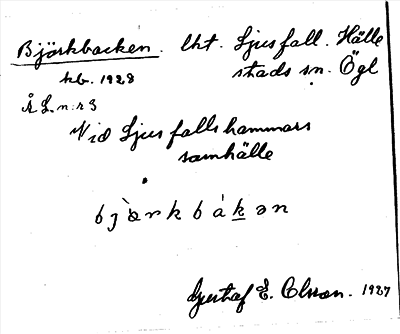 Björkbacken. lht. Ljusfall. Hälle
kb. 1928 stads sn. Ögl
Å L. n:r 3
Vid Ljusfallshammars
samhälle
bjàrkbákən
Gustaf E. Olsson. 1927